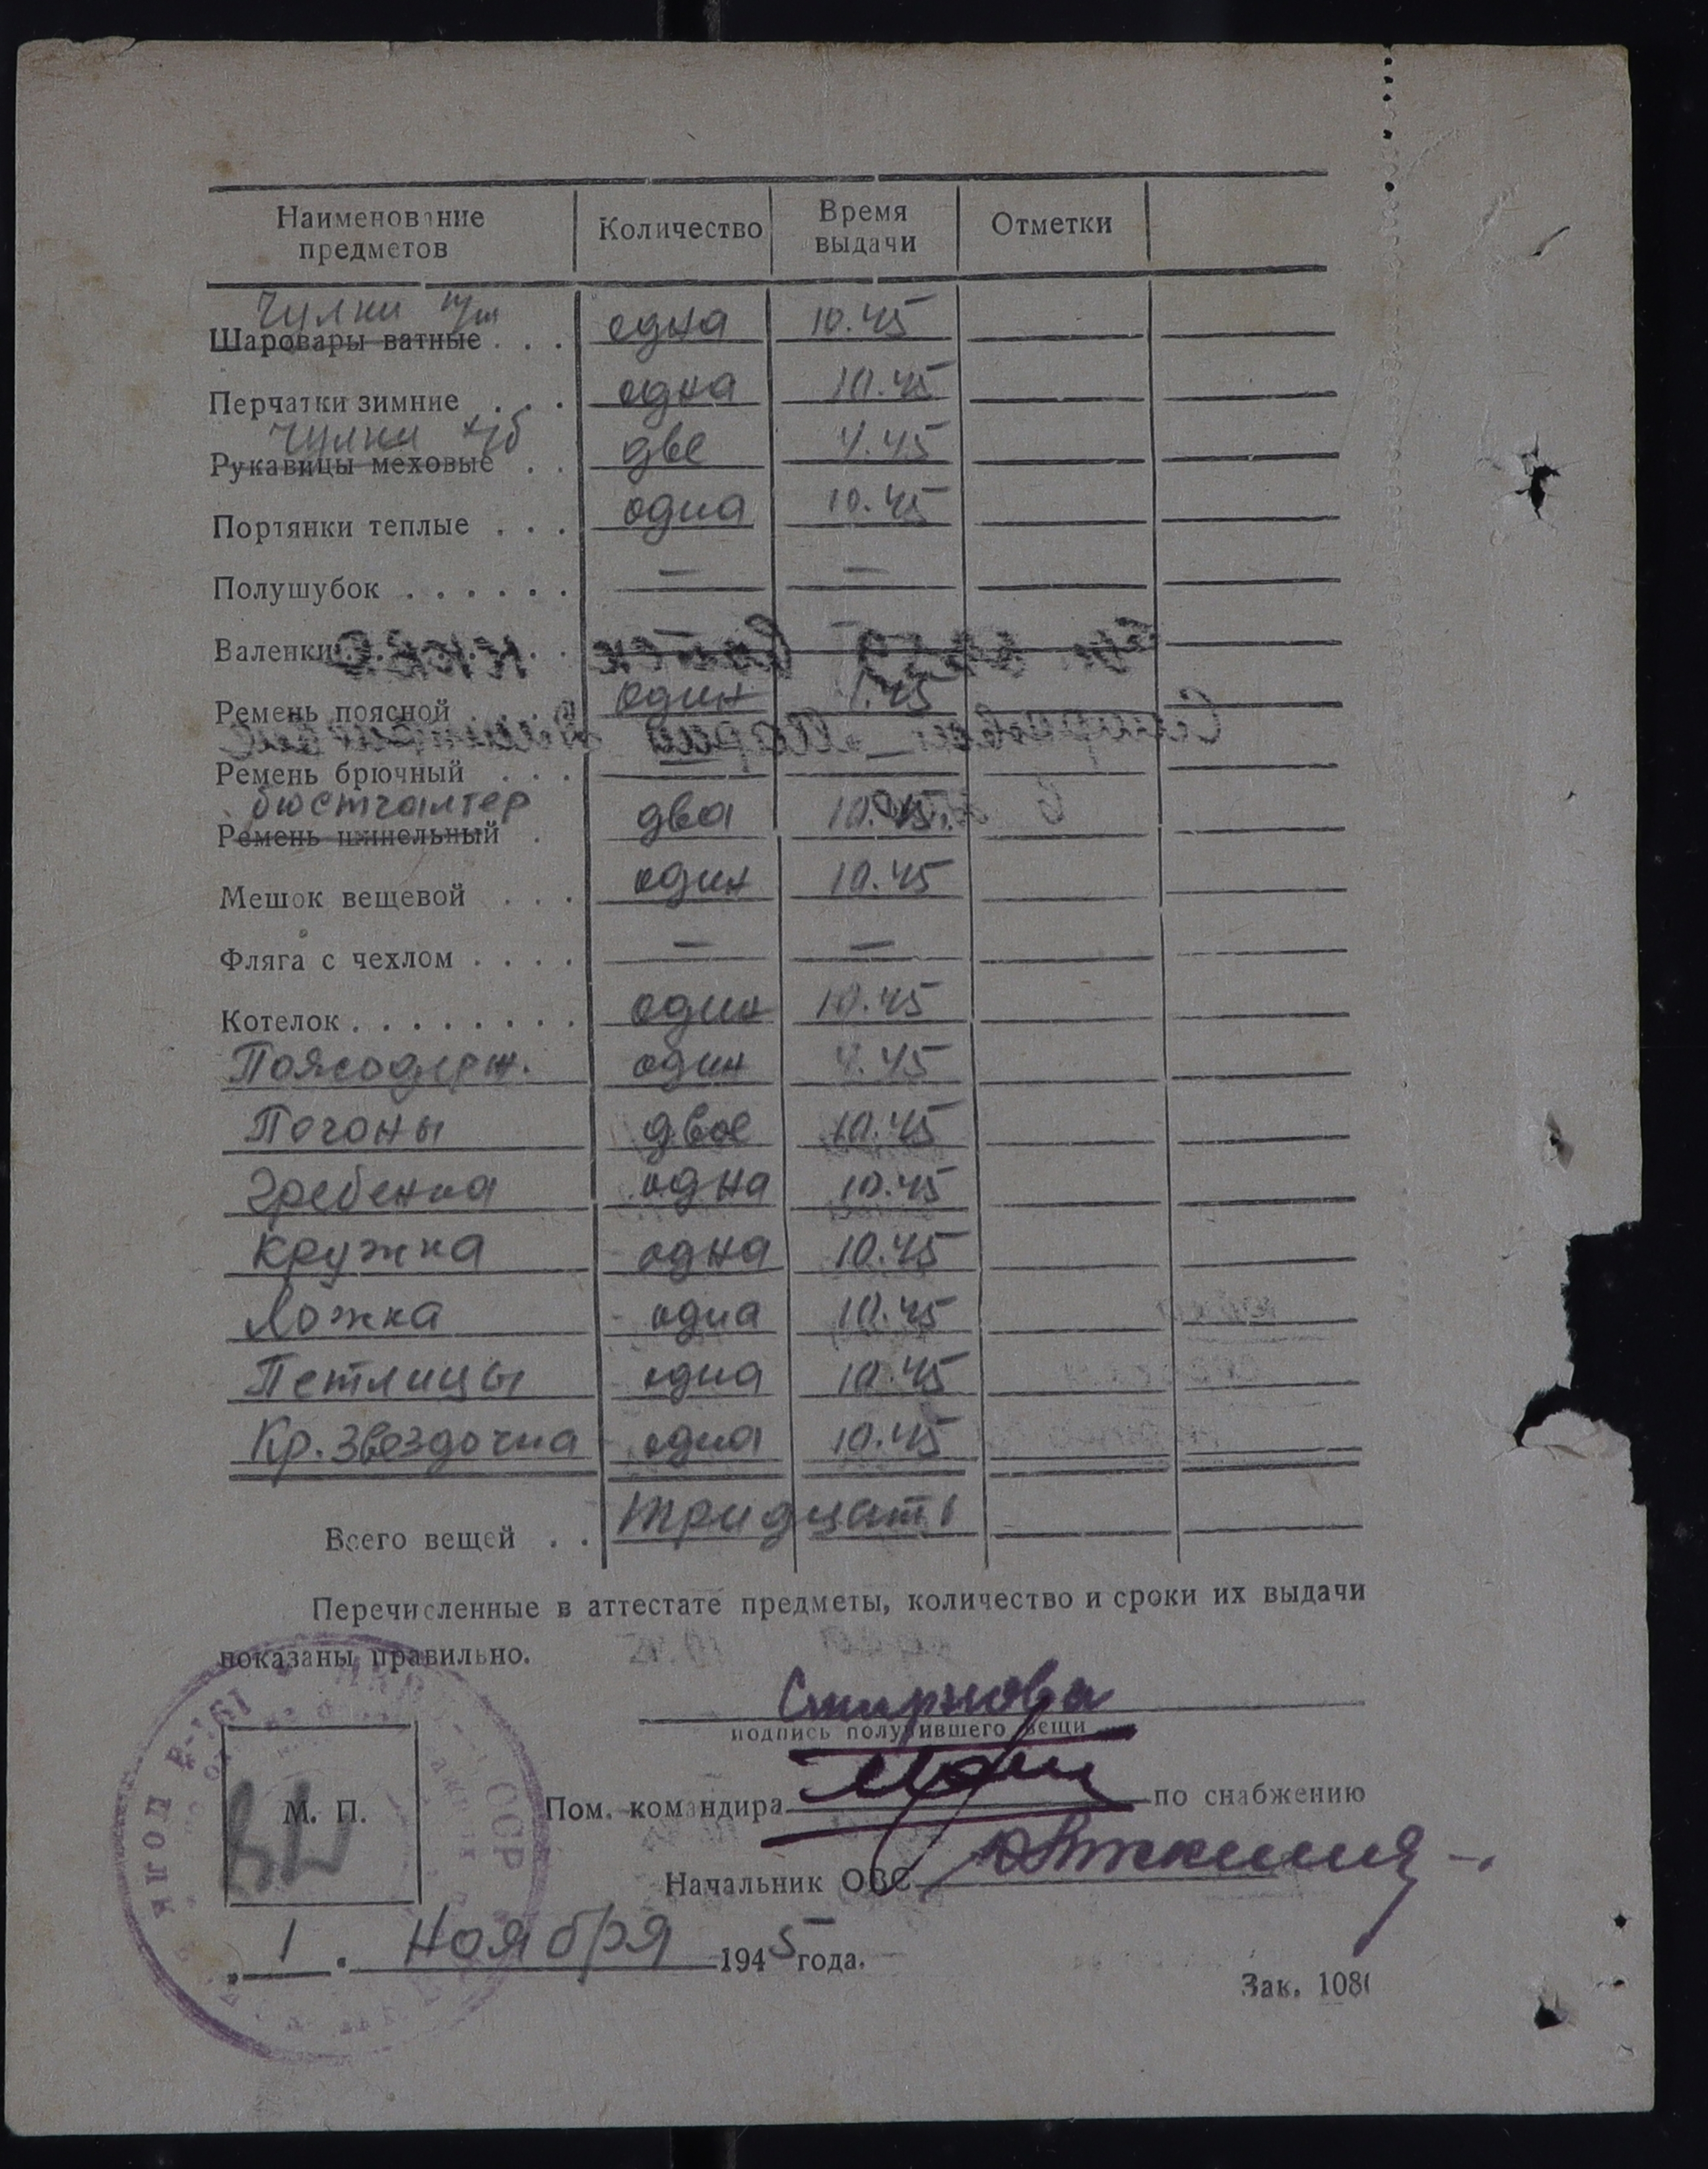 Наименование предметов Количество Время выдачи Отметки
Чулки п/ш
Шаровары ватные . . . одна 10.45
Перчатки зимние . . . одна 10.45
Чулки х/б
Рукавицы меховые . . две 4.45
Портянки теплые . . . одна 10.45
Полушубок . . . . . . — —
Валенки
Ремень поясной один 1.45
Ремень брючный . . . — —
бюстгалтер
Ремень шинельный . два 10.45
Мешок вещевой . . . один 10.45
Фляга с чехлом . . . . — —
Котелок . . . . . . . . один 10.45
Поясодерж. один 4.45
Погоны двое 10.45
Гребенка одна 10.45
Кружка одна 10.45
Ложка одна 10.45
Петлицы одна 10.45
Кр. Звездочка одна 10.45
Всего вещей . . тридцать
Перечисленные в аттестате предметы, количество и сроки их выдачи
показаны правильно.
Смирнова
подпись получившего вещи
М. П.
Пом. командира по снабжению
Начальник ОВС
„ 1 " ноября 1945 года.
Зак. 108